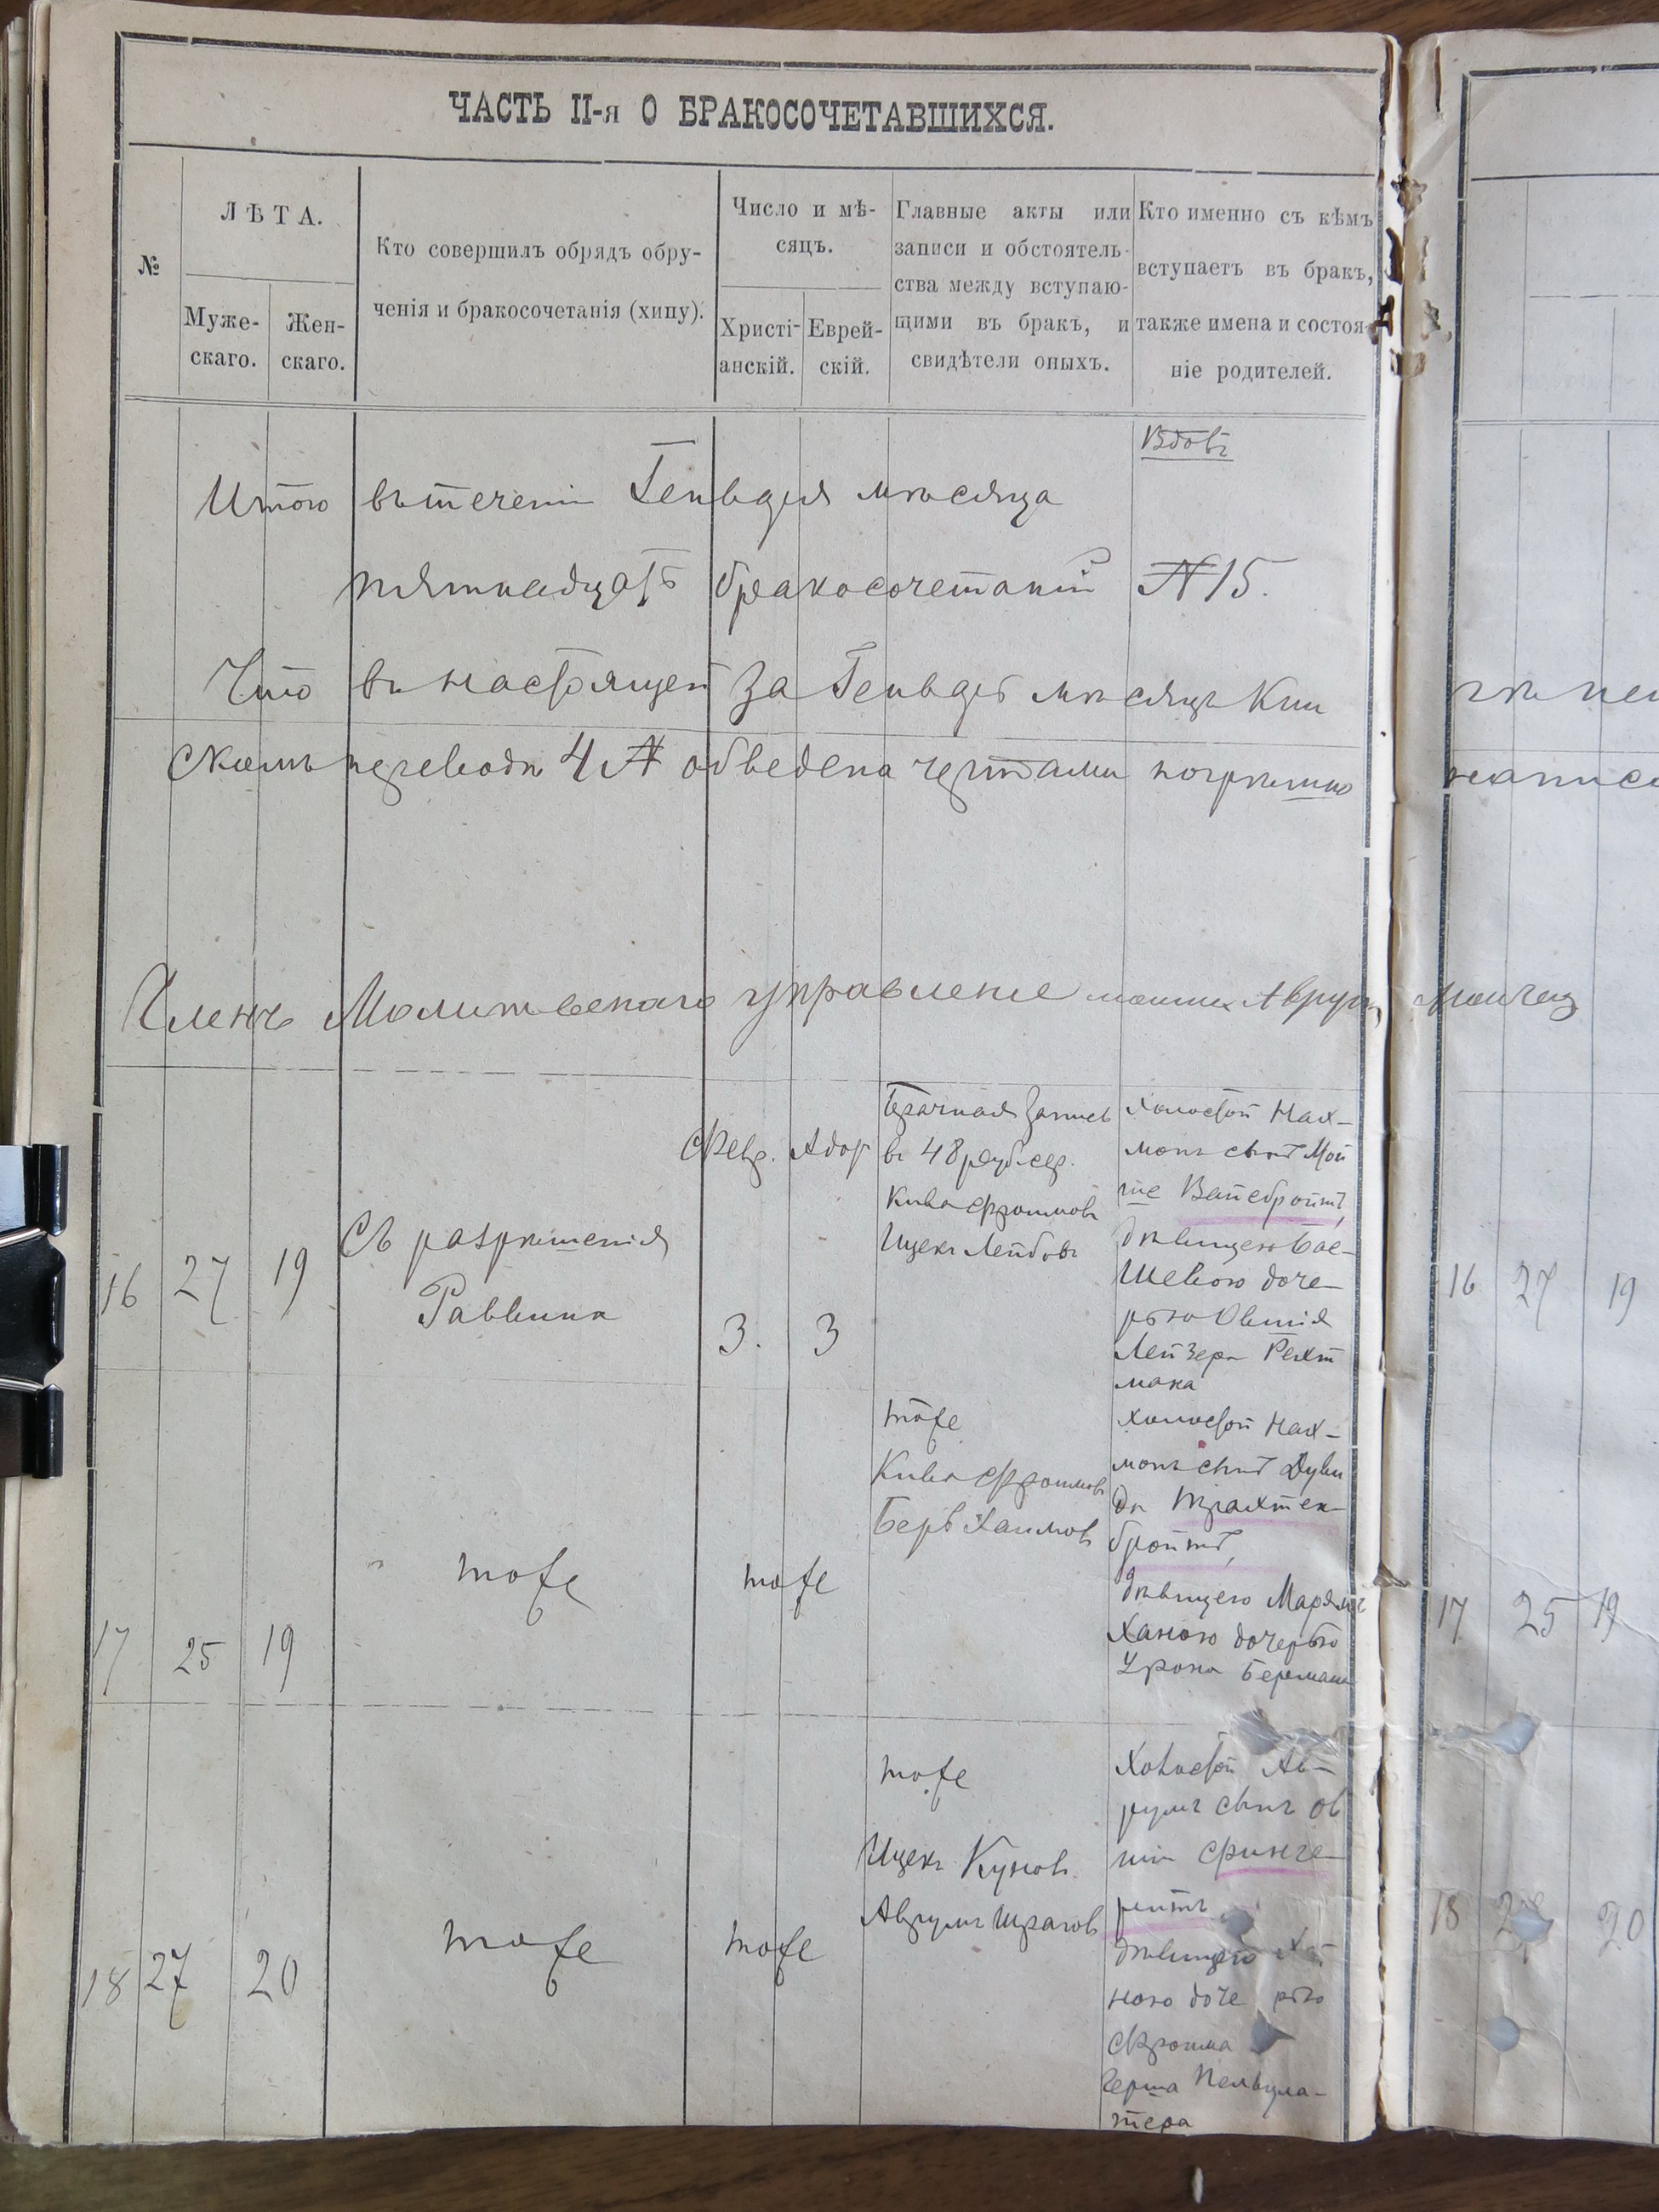 ЧАСТЬ II-я О БРАКОСОЧЕТАВШИХСЯ.
№
ЛѢТА.
Муже-
скаго.
Жен-
скаго.
Кто совершилъ обрядъ обру-
ченія и бракосочетанія (хипу).
Число и мѣ-
сяцъ.
Христі-
анскій.
Еврей-
скій.
Главные акты или
записи и обстоятель-
ства между вступаю-
щими въ бракъ, и
свидѣтели оныхъ.
Кто именно съ кѣмъ
вступаетъ въ бракъ,
также имена и состоя-
ніе родителей.
Вдовъ
Итого въ теченіи Генваря мѣсяца
пятнадцать бракосочетаній №15.
Что въ настоящей за Генварь мѣсяцъ
переводъ 4 № обведена чертами
Членъ управленіе
16 27 19
Съ разрѣшенія
Раввина
Февр. Адар
3. 3
Брачная запись
въ 48 руб. сер.
Кива Фроимовъ
Ицекъ Лейбовъ
Холостой Нах-
манъ сынъ Мой
ше Вайсбройтъ,
дѣвицею Бас-
Шевою доче-
рью Овшія
Лейзера Рехт
мана
17 25 19
тоже
тоже
тоже
Кива Фроимовъ
Беръ Хаимовъ
Холостой Нах-
манъ сынъ Дуви
да Трахтен-
бройтъ,
дѣвицею Марьямъ
Ханою дочерью
Урона Бермана
18 27 20
тоже
тоже
тоже
Ицекъ Куновъ
Аврумъ Шраговъ
Холостой Ав-
румъ сынъ Ов
шія Финге-
рейтъ
дѣвицею
ною доче рью
Фроима
Герша
тера
16 27 19
17 25 19
18 20